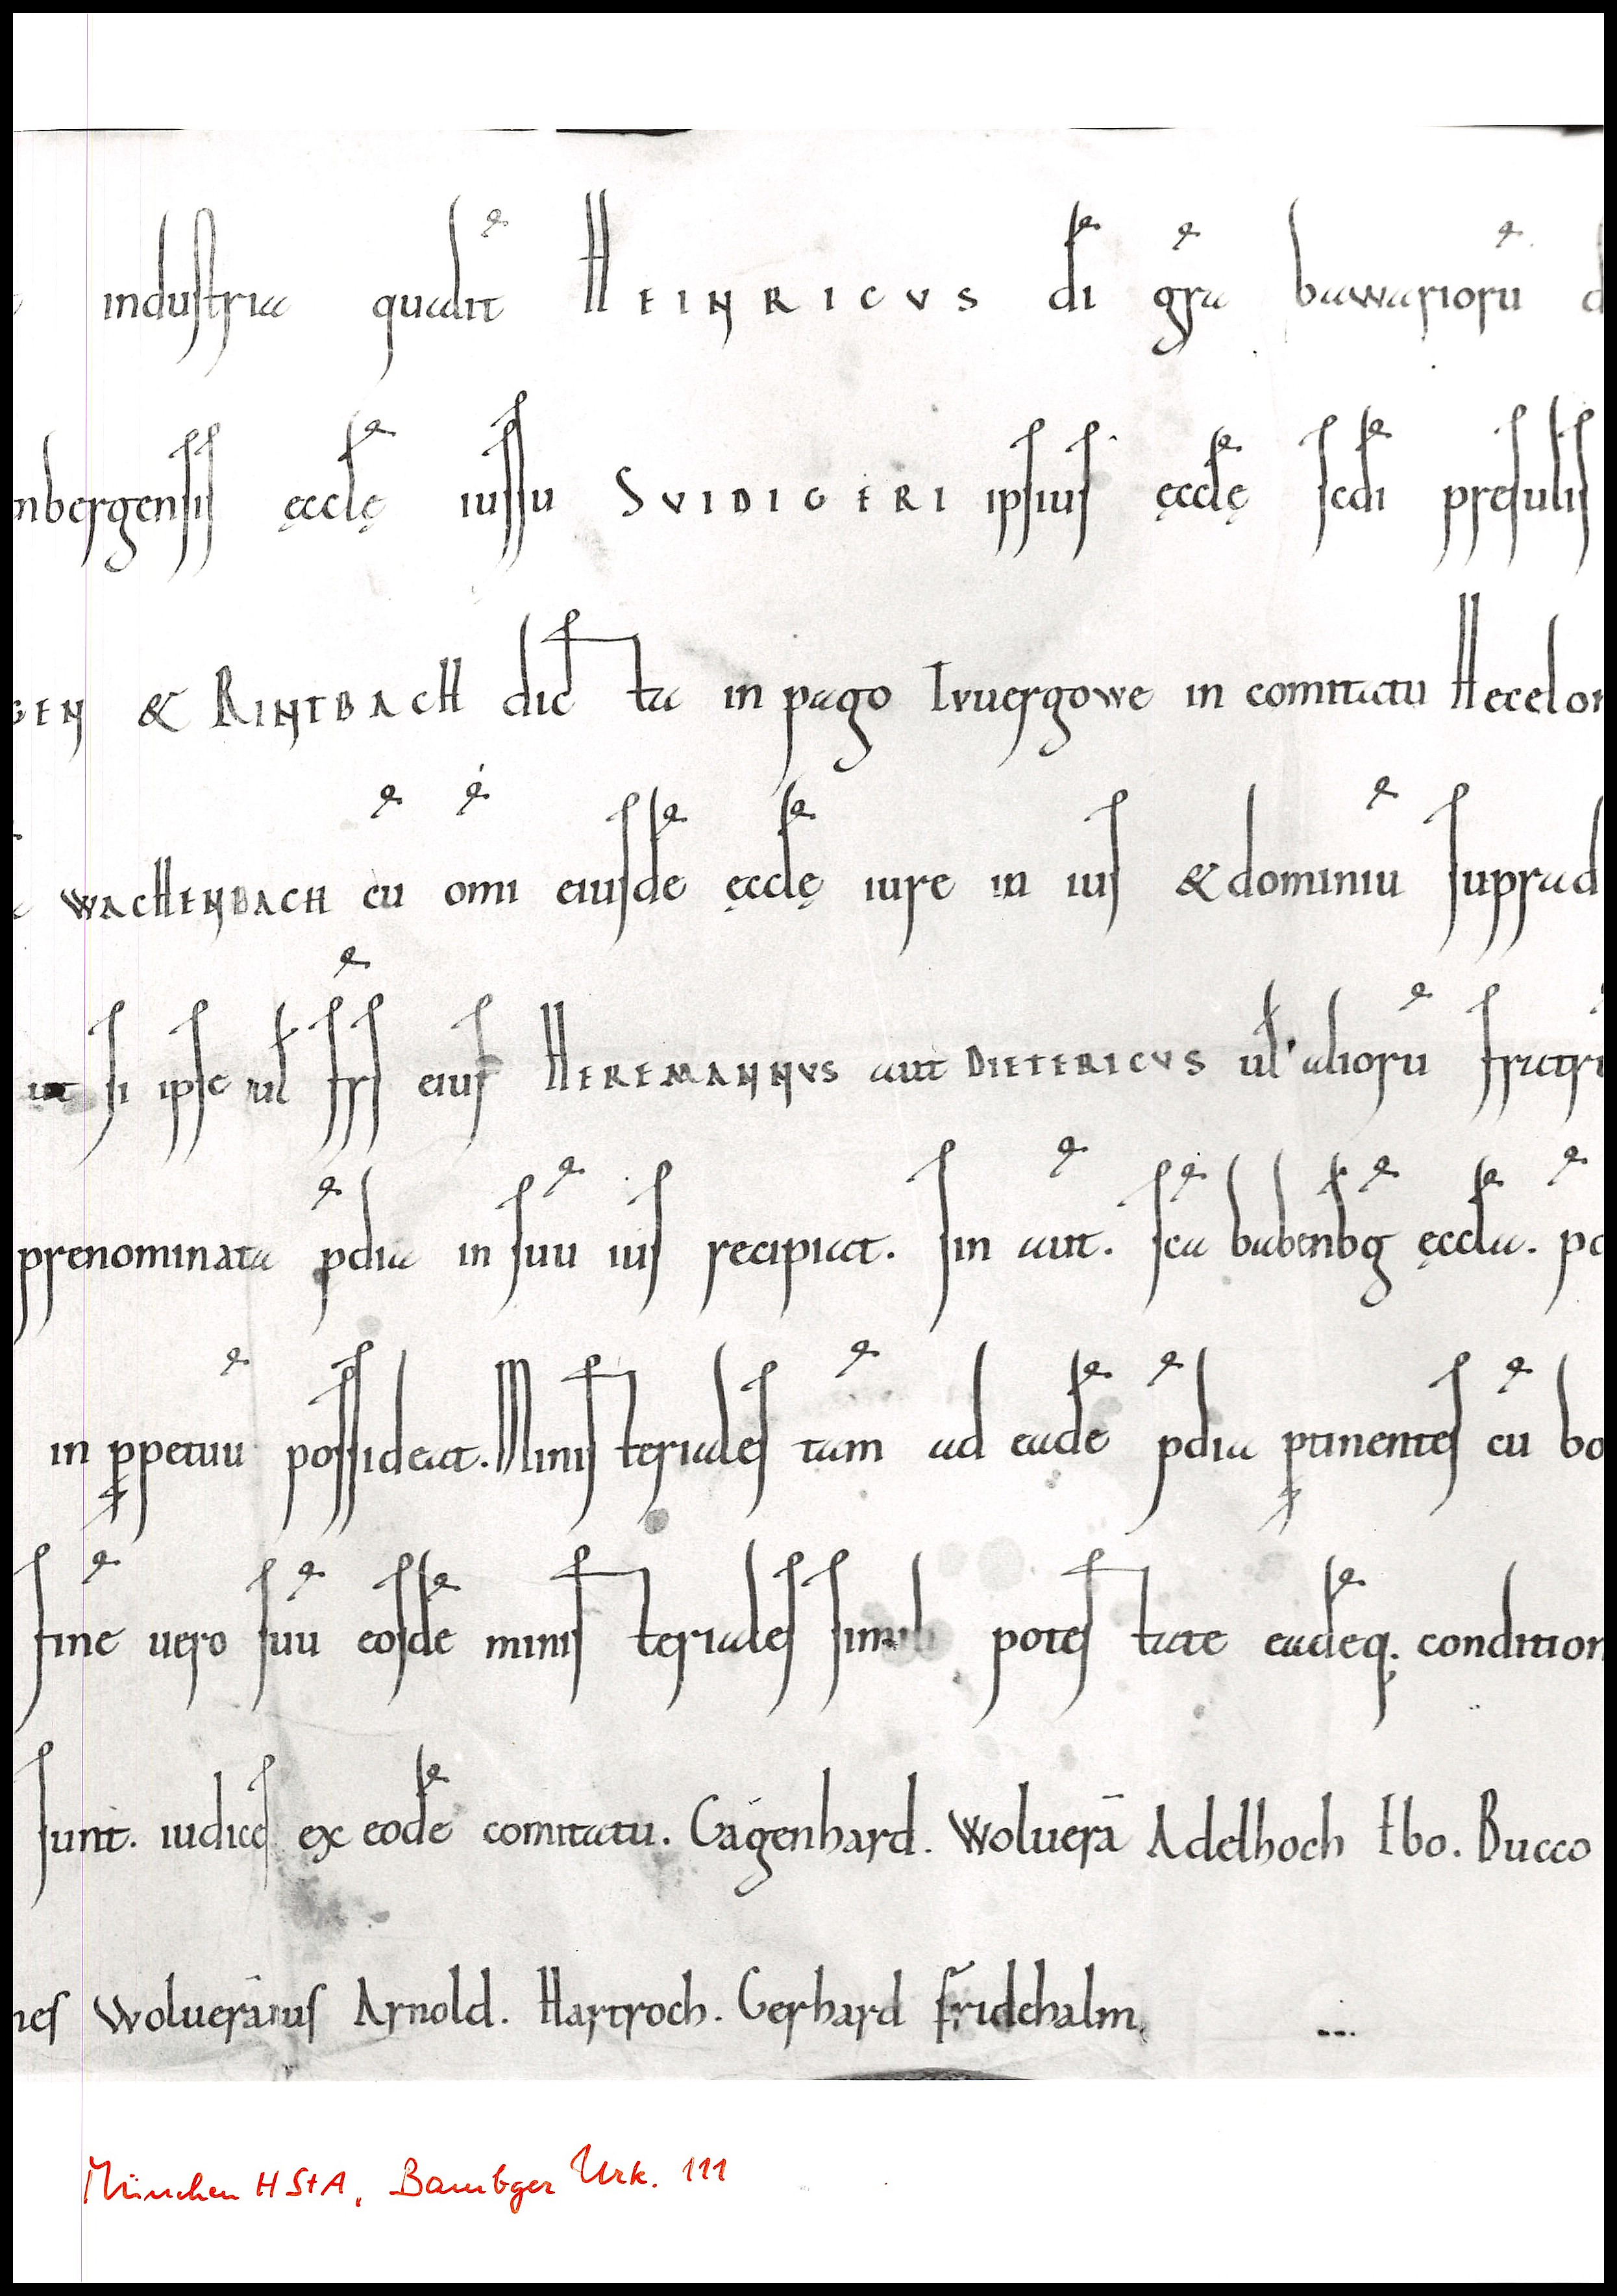 industria quałit HEINRICVS di gra bawarioru
nbergensis ęcclę iussu SVIDIGERI ipsius ęcclę sedi presulis
GEN & RINTBACH dicta in pago Iruergowe in comitatu Hecelon
WACHENBACH cū omi eiusdē ęcclę iure in ius & dominiū suprad
ut si ipse ul frs eius HEREMANNVS aut DIETERICVS ul aliorū fratrū
prenominata pdia in suū ius recipiat. Sin aut. sca babenbg ęccla. po
in ppetuū possideat. Ministeriales tam ad eadē pdia ptinentes cū bo
fine vero suū eosdē ministeriales simili potestate eadēq; condition
sunt. iudices ex eodē comitatu. Gagenhard. Woluerā Adelhoch Ebo. Bucco
nes Woluerāmus Arnold. Hartroch. Gerhard fridehalm.
München HStA, Bambger Urk. 111